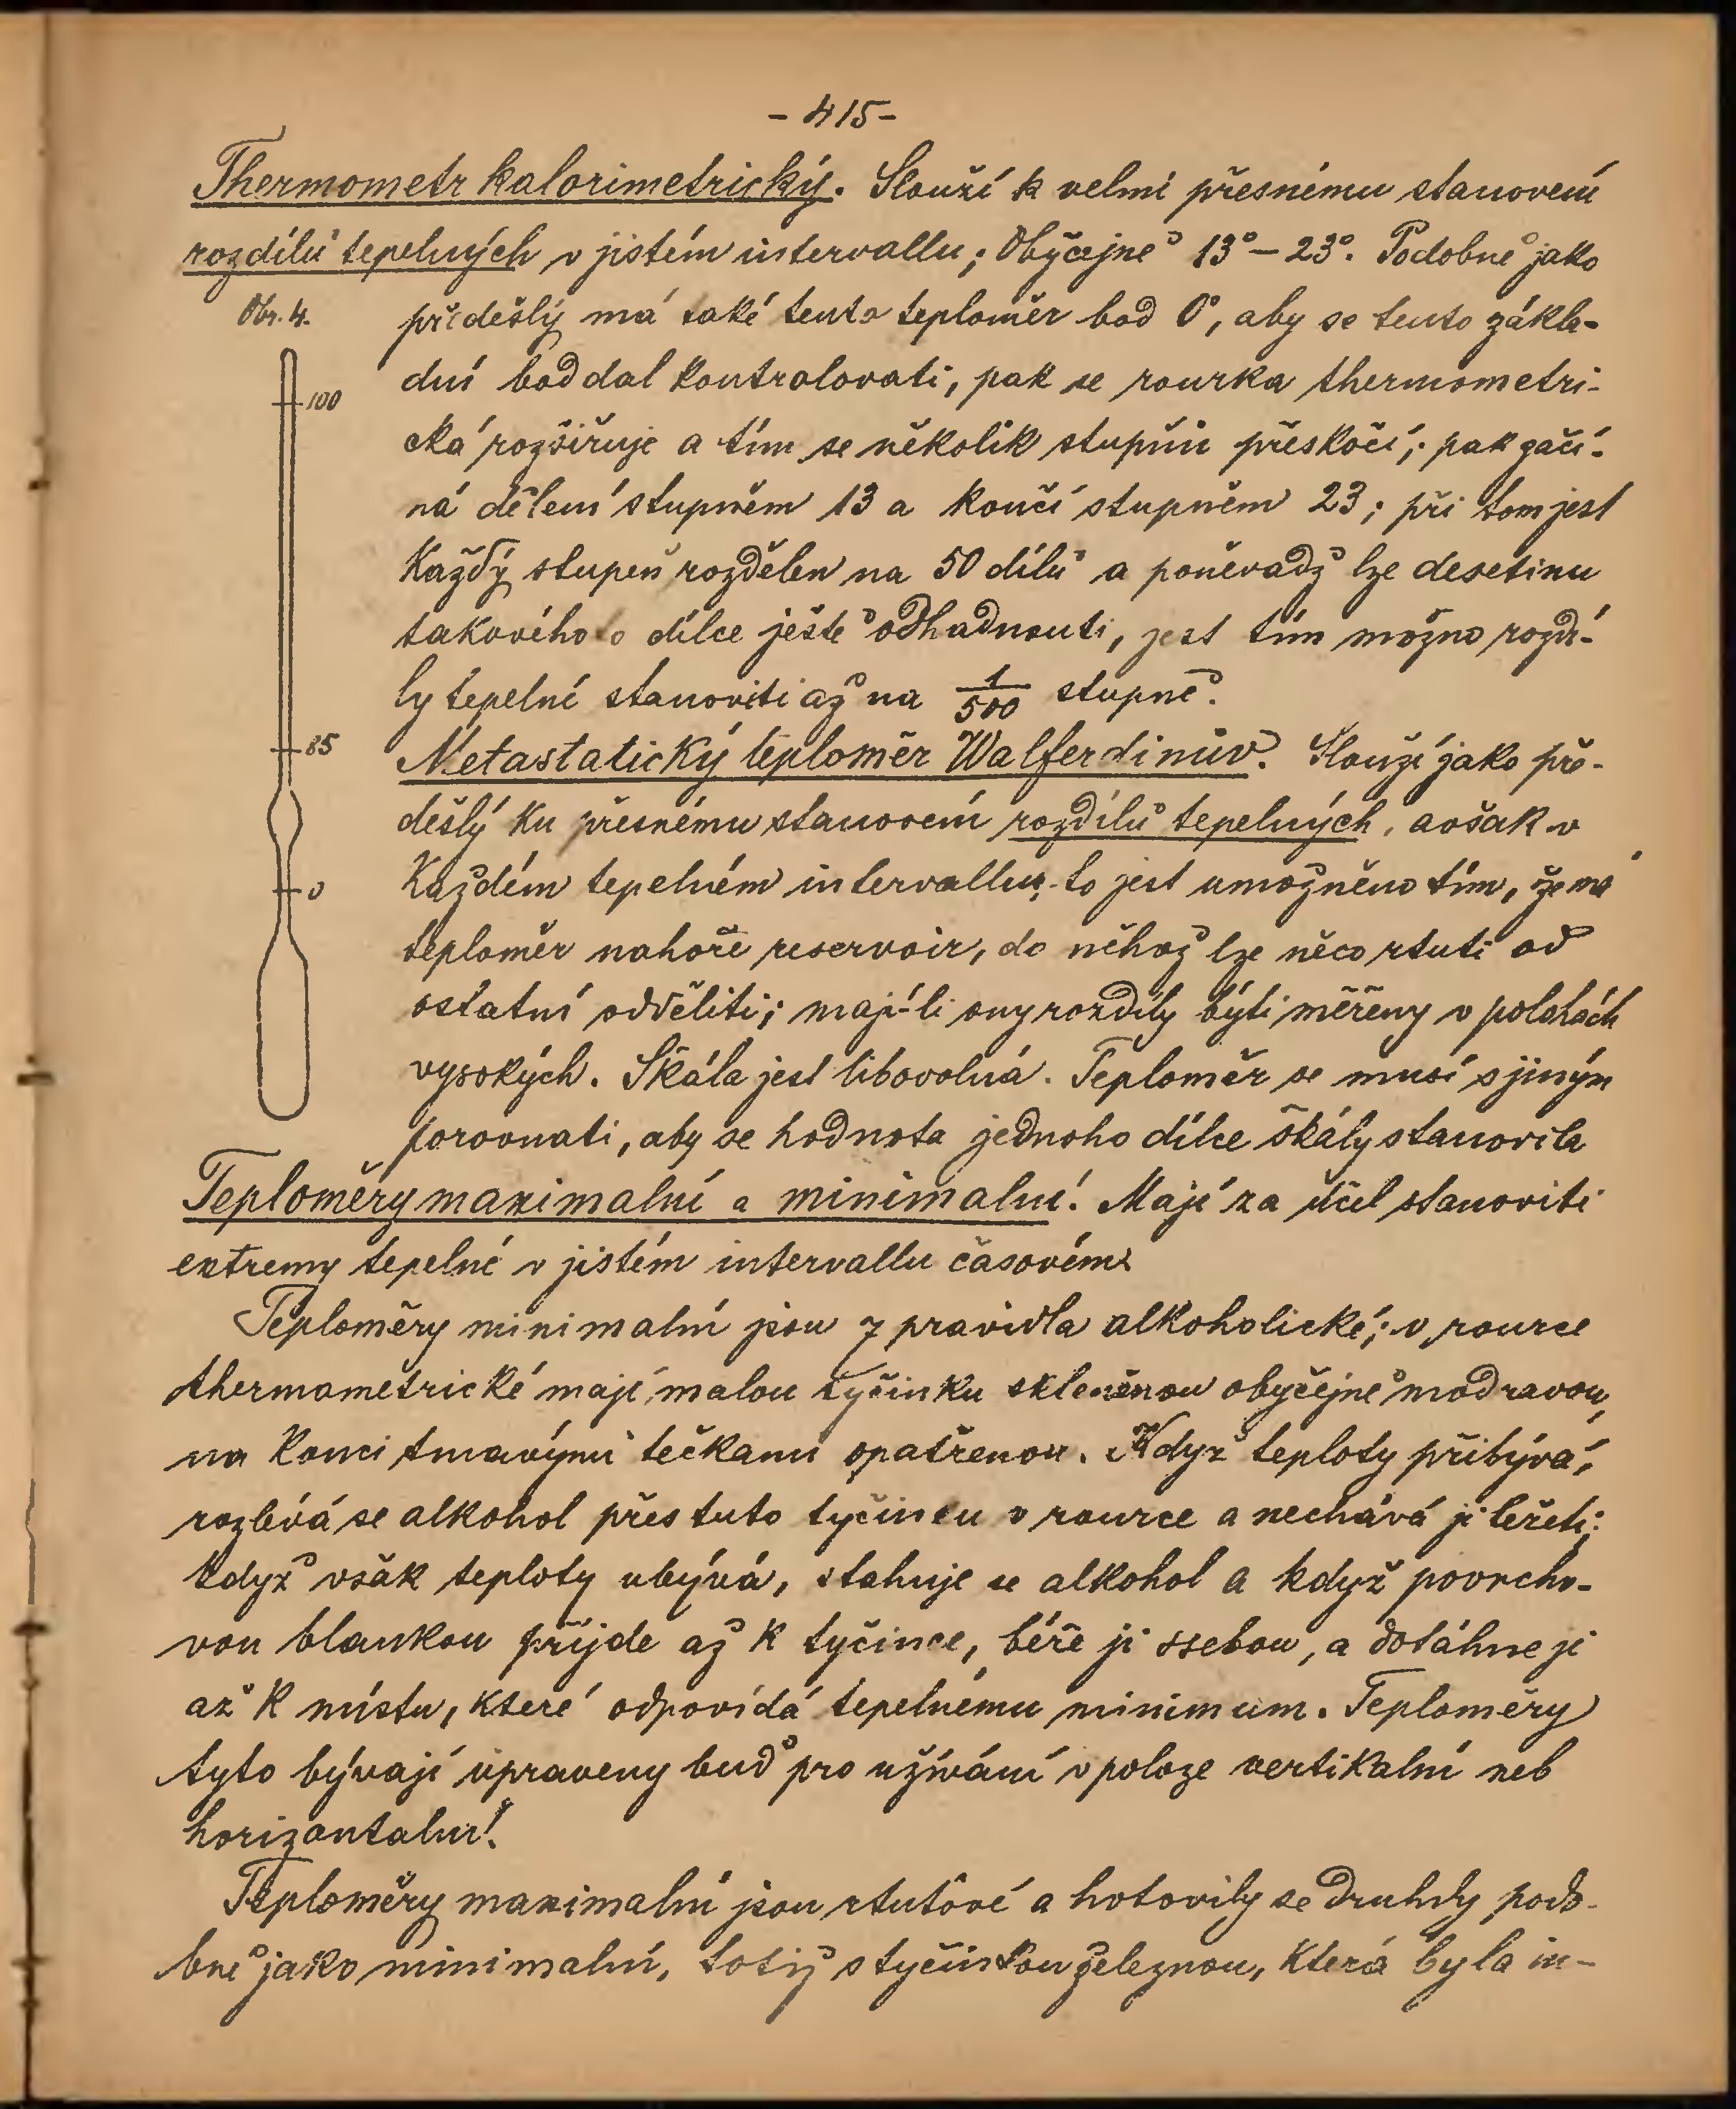 - 415 -
Thermometr kalorimetrický. Slouží k velmi přesnému stanovení
rozdílů tepelných v jistém intervallu; obyčejně 13° – 23°. Podobně jako
Obr. 4.
předešlý má také tento teploměr bod 0°, aby se tento zákla-
dní bod dal kontrolovati, pak se rourka thermometri-
cká rozšiřuje a tím se několik stupňů přeskočí; pak začí-
ná dělení stupněm 13 a končí stupněm 23; při tom jest
každý stupeň rozdělen na 50 dílů a poněvadž lze desetinu
takového to dílce ještě odhadnouti, jest tím možno rozdí-
ly tepelné stanoviti až na 1/500 stupně.
100
85
0
Metastatický teploměr Walferdinův. Slouží jako pře-
dešlý ku přesnému stanovení rozdílů tepelných, avšak v
každém tepelném intervallu; to jest umožněno tím, že má
teploměr nahoře reservoir, do něhož lze něco rtuti od
ostatní odděliti; mají-li ony rozdíly býti měřeny v polohách
vysokých. Škála jest libovolná. Teploměr se musí s jiným
porovnati, aby se hodnota jednoho dílce škály stanovila
Teploměry maximalní a minimalní. Mají za účel stanoviti
extremy tepelné v jistém intervallu časovém.
Teploměry minimalní jsou z pravidla alkoholické; v rource
thermometrické mají malou tyčinku skleněnou obyčejně modravou,
na konci tmavými tečkami opatřenou. Když teploty přibývá,
rozlévá se alkohol přes tuto tyčinku v rource a nechává ji ležeti;
když však teploty ubývá, stahuje se alkohol a když povrcho-
vou blankou přijde až k tyčince, béře ji ssebou, a dotáhne ji
až k místu, které odpovídá tepelnému minimum. Teploměry
tyto bývají upraveny buď pro užívání v poloze vertikalní neb
horizontalní.
Teploměry maximalní jsou rtuťové a hotovily se druhdy podo-
bně jako minimalní, totiž s tyčinkou železnou, která byla in-